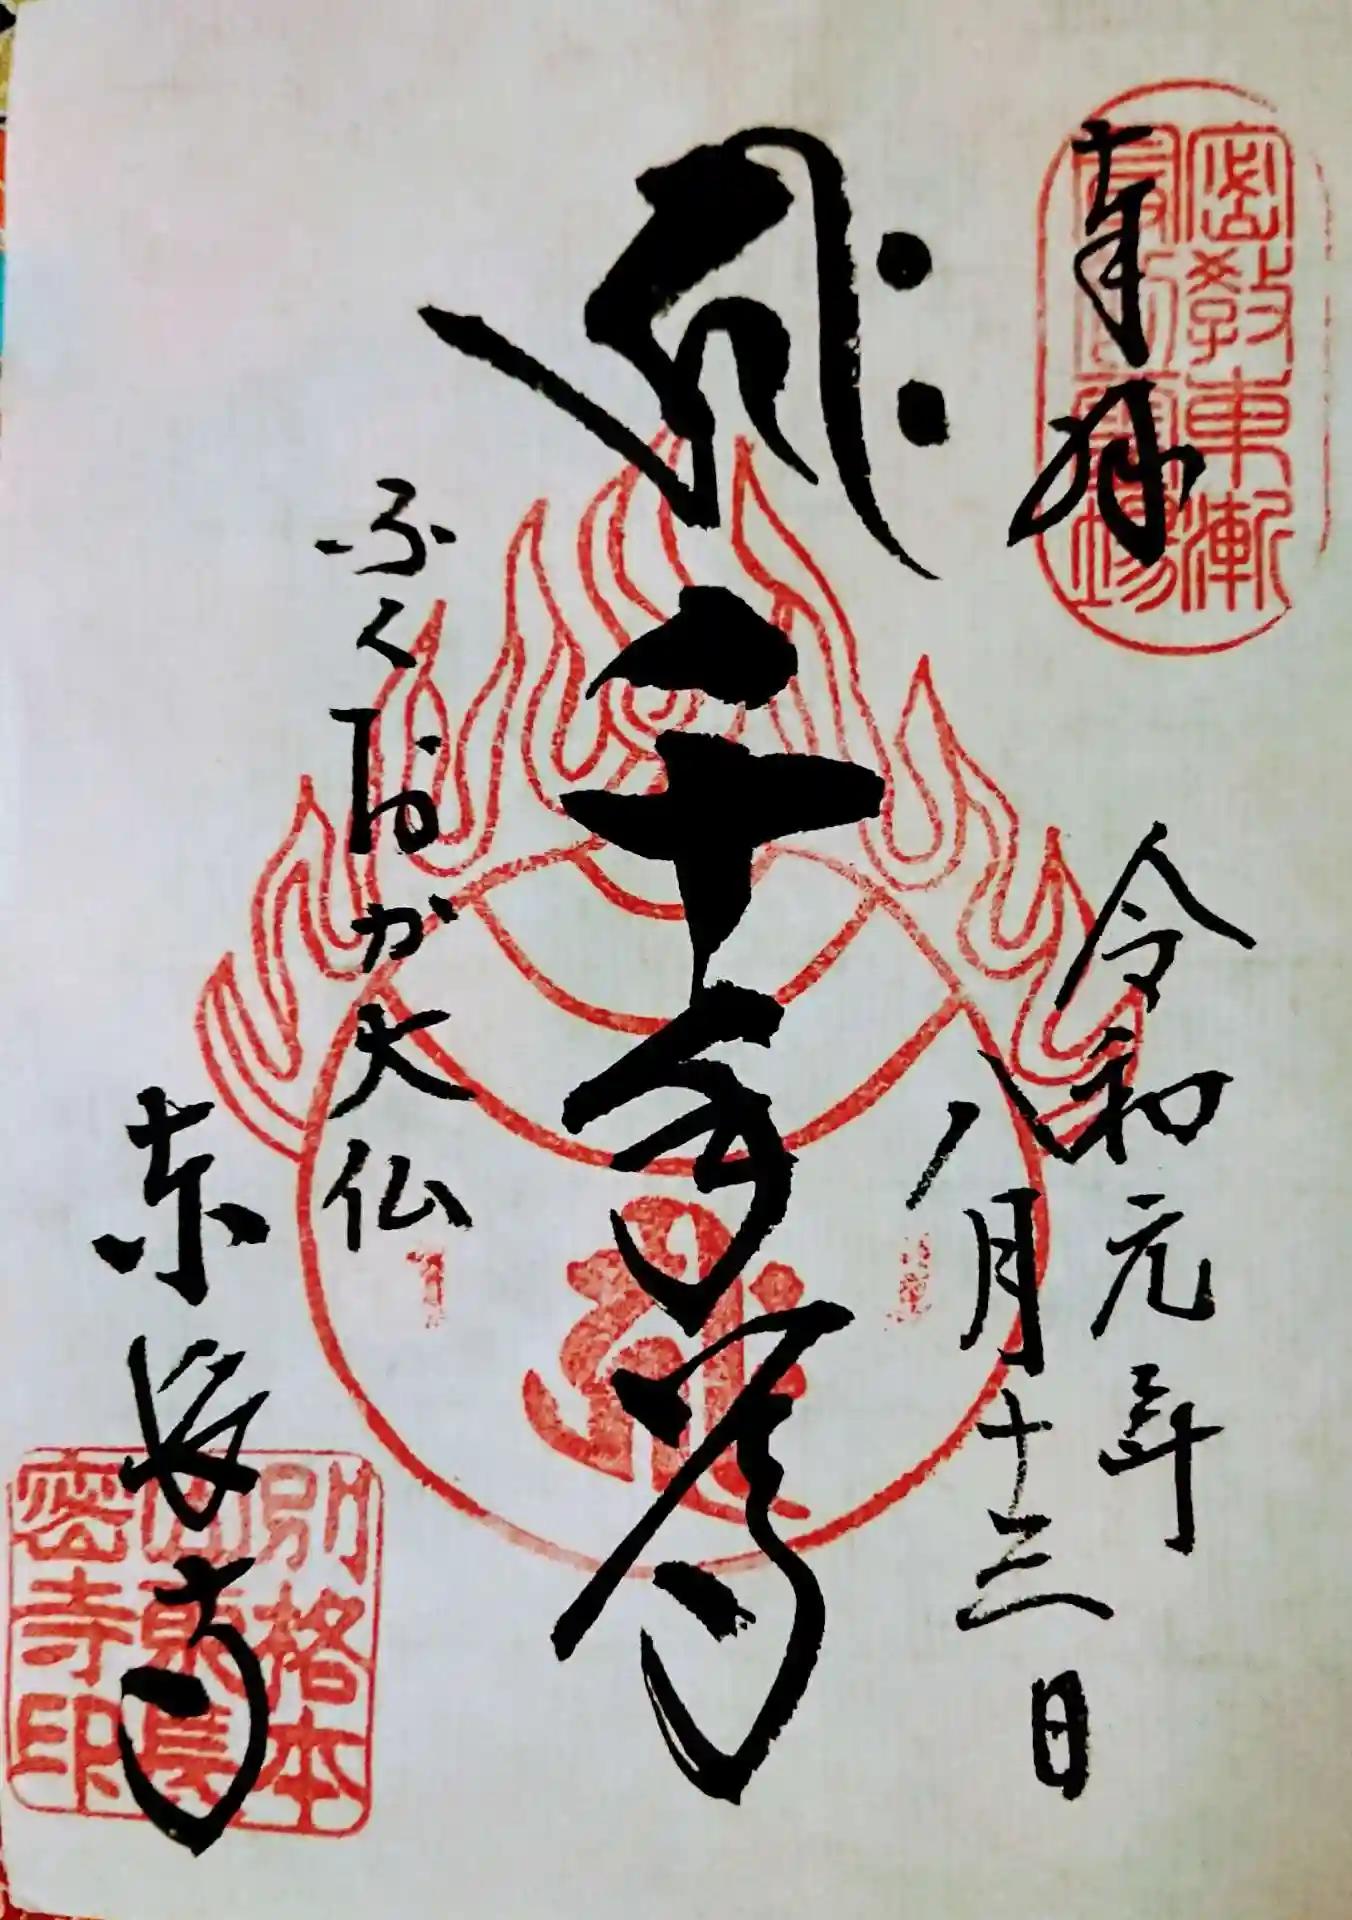 密教東漸
最初霊場
奉拝
令和元年
八月十三日
千手尊
ふくおか大仏
東長寺
別格本
山東長
密寺印